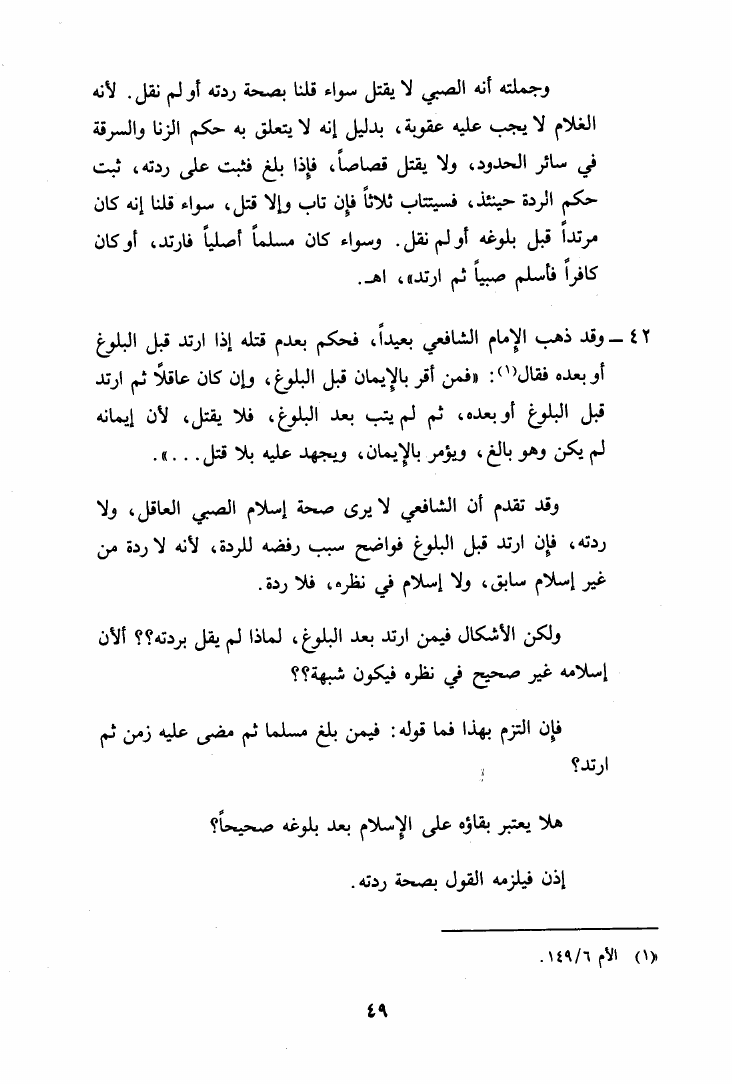 وجملته أنه الصبي لا يقتل سواء قلنا بصحة ردته أو لم نقل. لأنه
الغلام لا يجب عليه عقوبة، بدليل إنه لا يتعلق به حكم الزنا والسرقة
في سائر الحدود، ولا يقتل قصاصاً، فإذا بلغ فثبت على ردته، ثبت
حكم الردة حينئذ، فسيتتاب ثلاثاً فإن تاب وإلا قتل، سواء قلنا إنه كان
مرتداً قبل بلوغه أو لم نقل. وسواء كان مسلماً أصلياً فارتد، أو كان
كافراً فأسلم صبياً ثم ارتد»، اهـ.
٤٢ – وقد ذهب الإمام الشافعي بعيداً، فحكم بعدم قتله إذا ارتد قبل البلوغ
أو بعده فقال(١): «فمن أقر بالإيمان قبل البلوغ، وإن كان عاقلاً ثم ارتد
قبل البلوغ أو بعده، ثم لم يتب بعد البلوغ، فلا يقتل، لأن إيمانه
لم يكن وهو بالغ، ويؤمر بالإيمان، ويجهد عليه بلا قتل...».
وقد تقدم أن الشافعي لا يرى صحة إسلام الصبي العاقل، ولا
ردته، فإن ارتد قبل البلوغ فواضح سبب رفضه للردة، لأنه لا ردة من
غير إسلام سابق، ولا إسلام في نظره، فلا ردة.
ولكن الأشكال فيمن ارتد بعد البلوغ، لماذا لم يقل بردته؟؟ ألأن
إسلامه غير صحيح في نظره فيكون شبهة؟؟
فإن التزم بهذا فما قوله: فيمن بلغ مسلما ثم مضى عليه زمن ثم
ارتد؟
هلا يعتبر بقاؤه على الإسلام بعد بلوغه صحيحاً؟
إذن فيلزمه القول بصحة ردته.
(١) الأم ١٤٩/٦.
٤٩